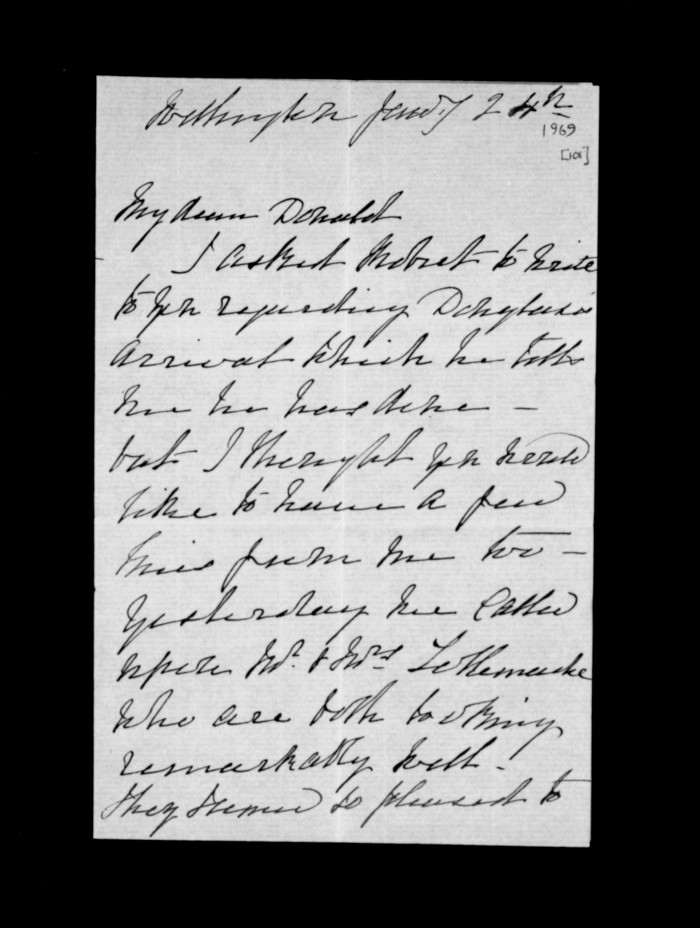 Wellington Jany 24th
1969
[101]
My dear Donald
I asked Robert to write
to you regarding Douglas's
arrival which he tells
me he has done –
but I thought you would
like to have a few
lines from me too –
Yesterday we called
upon Mr. & Mrs
who are both looking
remarkably well.
They seemed so pleased to